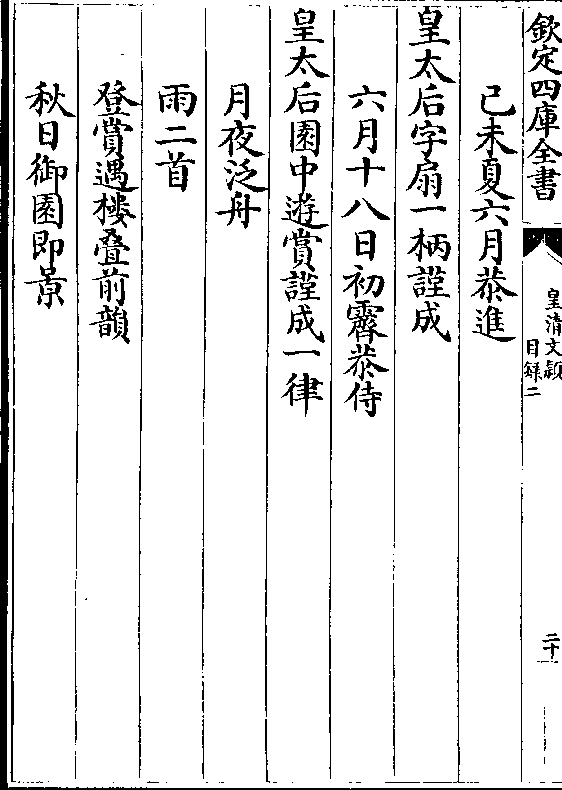 欽定四庫全書
皇清文穎
目録二
二十
己未夏六月恭進
皇太后字扇一柄謹成
六月十八日初霽恭侍
皇太后園中遊賞謹成一律
月夜泛舟
雨二首
登賞遇樓叠前韻
秋日御園即景